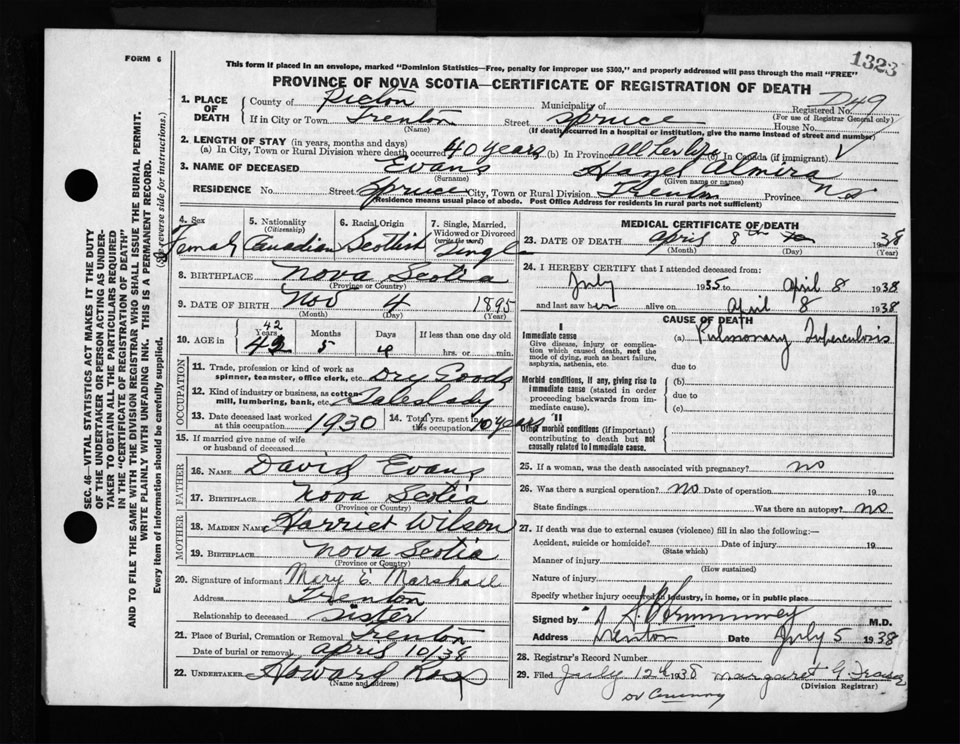 FORM 6
1323
This form if placed in an envelope, marked "Dominion Statistics—Free, penalty for improper use $300," and properly addressed will pass through the mail "FREE"
PROVINCE OF NOVA SCOTIA—CERTIFICATE OF REGISTRATION OF DEATH
SEC. 46—VITAL STATISTICS ACT MAKES IT THE DUTY
OF THE UNDERTAKER OR PERSON ACTING AS UNDER-
TAKER TO OBTAIN ALL THE PARTICULARS REQUIRED
IN THE "CERTIFICATE OF REGISTRATION OF DEATH"
AND TO FILE THE SAME WITH THE DIVISION REGISTRAR WHO SHALL ISSUE THE BURIAL PERMIT.
WRITE PLAINLY WITH UNFADING INK. THIS IS A PERMANENT RECORD.
Every item of information should be carefully supplied. (See reverse side for instructions.)
1. PLACE OF DEATH
County of Pictou Municipality of Registered No. 49
(For use of Registrar General only)
If in City or Town Trenton Street Spruce House No.
(Name) (If death occurred in a hospital or institution, give the name instead of street and number)
2. LENGTH OF STAY (in years, months and days)
(a) In City, Town or Rural Division where death occurred 40 years (b) In Province All her life (c) In Canada (if immigrant)
3. NAME OF DECEASED Evans Hazel Almira
(Surname) (Given name or names)
RESIDENCE No. Street Spruce City, Town or Rural Division Trenton Province NS
(Residence means usual place of abode. Post Office Address for Residents in rural parts not sufficient)
4. Sex Female
5. Nationality (Citizenship) Canadian
6. Racial Origin Scottish
7. Single, Married, Widowed or Divorced (write the word) Single
8. BIRTHPLACE Nova Scotia
(Province or County)
9. DATE OF BIRTH Nov 4 1895
(Month) (Day) (Year)
10. AGE in 42 Years Months 5 Days If less than one day old hrs. or min.
OCCUPATION
11. Trade, profession or kind of work as spinner, teamster, office clerk, etc. Dry Goods
12. Kind of industry or business, as cotton-mill, lumbering, bank, etc. Saleslady
13. Date deceased last worked at this occupation 1930
14. Total yrs. spent in this occupation 10 years
15. If married give name of wife or husband of deceased
FATHER
16. NAME David Evans
17. BIRTHPLACE Nova Scotia
(Province or County)
MOTHER
18. MAIDEN NAME Harriet Wilson
19. BIRTHPLACE Nova Scotia
(Province or County)
20. Signature of informant Mary E. Marshall
Address Trenton
Relationship to deceased Sister
21. Place of Burial, Cremation or Removal Trenton
Date of burial or removal April 10/38
22. UNDERTAKER Howard Ross
(Name and address)
MEDICAL CERTIFICATE OF DEATH
23. DATE OF DEATH April 8th 1938
(Month) (Day) (Year)
24. I HEREBY CERTIFY that I attended deceased from:
July 1935 to April 8 1938
and last saw her alive on April 8 1938
CAUSE OF DEATH
I
Immediate cause (a) Pulmonary Tuberculosis
Give disease, injury or complication which caused death, not the mode of dying, such as heart failure, asphyxia, asthenia, etc.
due to
Morbid conditions, if any, giving rise to immediate cause (stated in order proceeding backwards from immediate cause).
(b)
due to
(c)
II
Other morbid conditions (if important) contributing to death but not causally related to immediate cause.
25. If a woman, was the death associated with pregnancy? no
26. Was there a surgical operation? no Date of operation 19
State findings Was there an autopsy? no
27. If death was due to external causes (violence) fill in also the following:
Accident, suicide or homicide? Date of injury 19
(State which)
Manner of injury
(How sustained)
Nature of injury
Specify whether injury occurred in industry, in home, or in public place
Signed by M.D.
Address Trenton Date July 5 1938
28. Registrar's Record Number
29. Filed July 12 1938 Margaret G. Fraser
(Division Registrar)